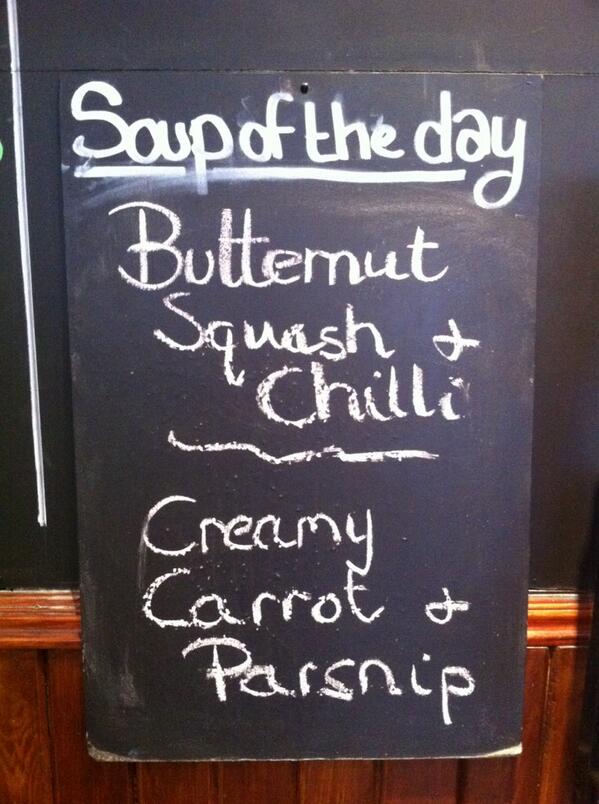 Soup of the day
Butternut
Squash &
Chilli
Creamy
Carrot &
Parsnip